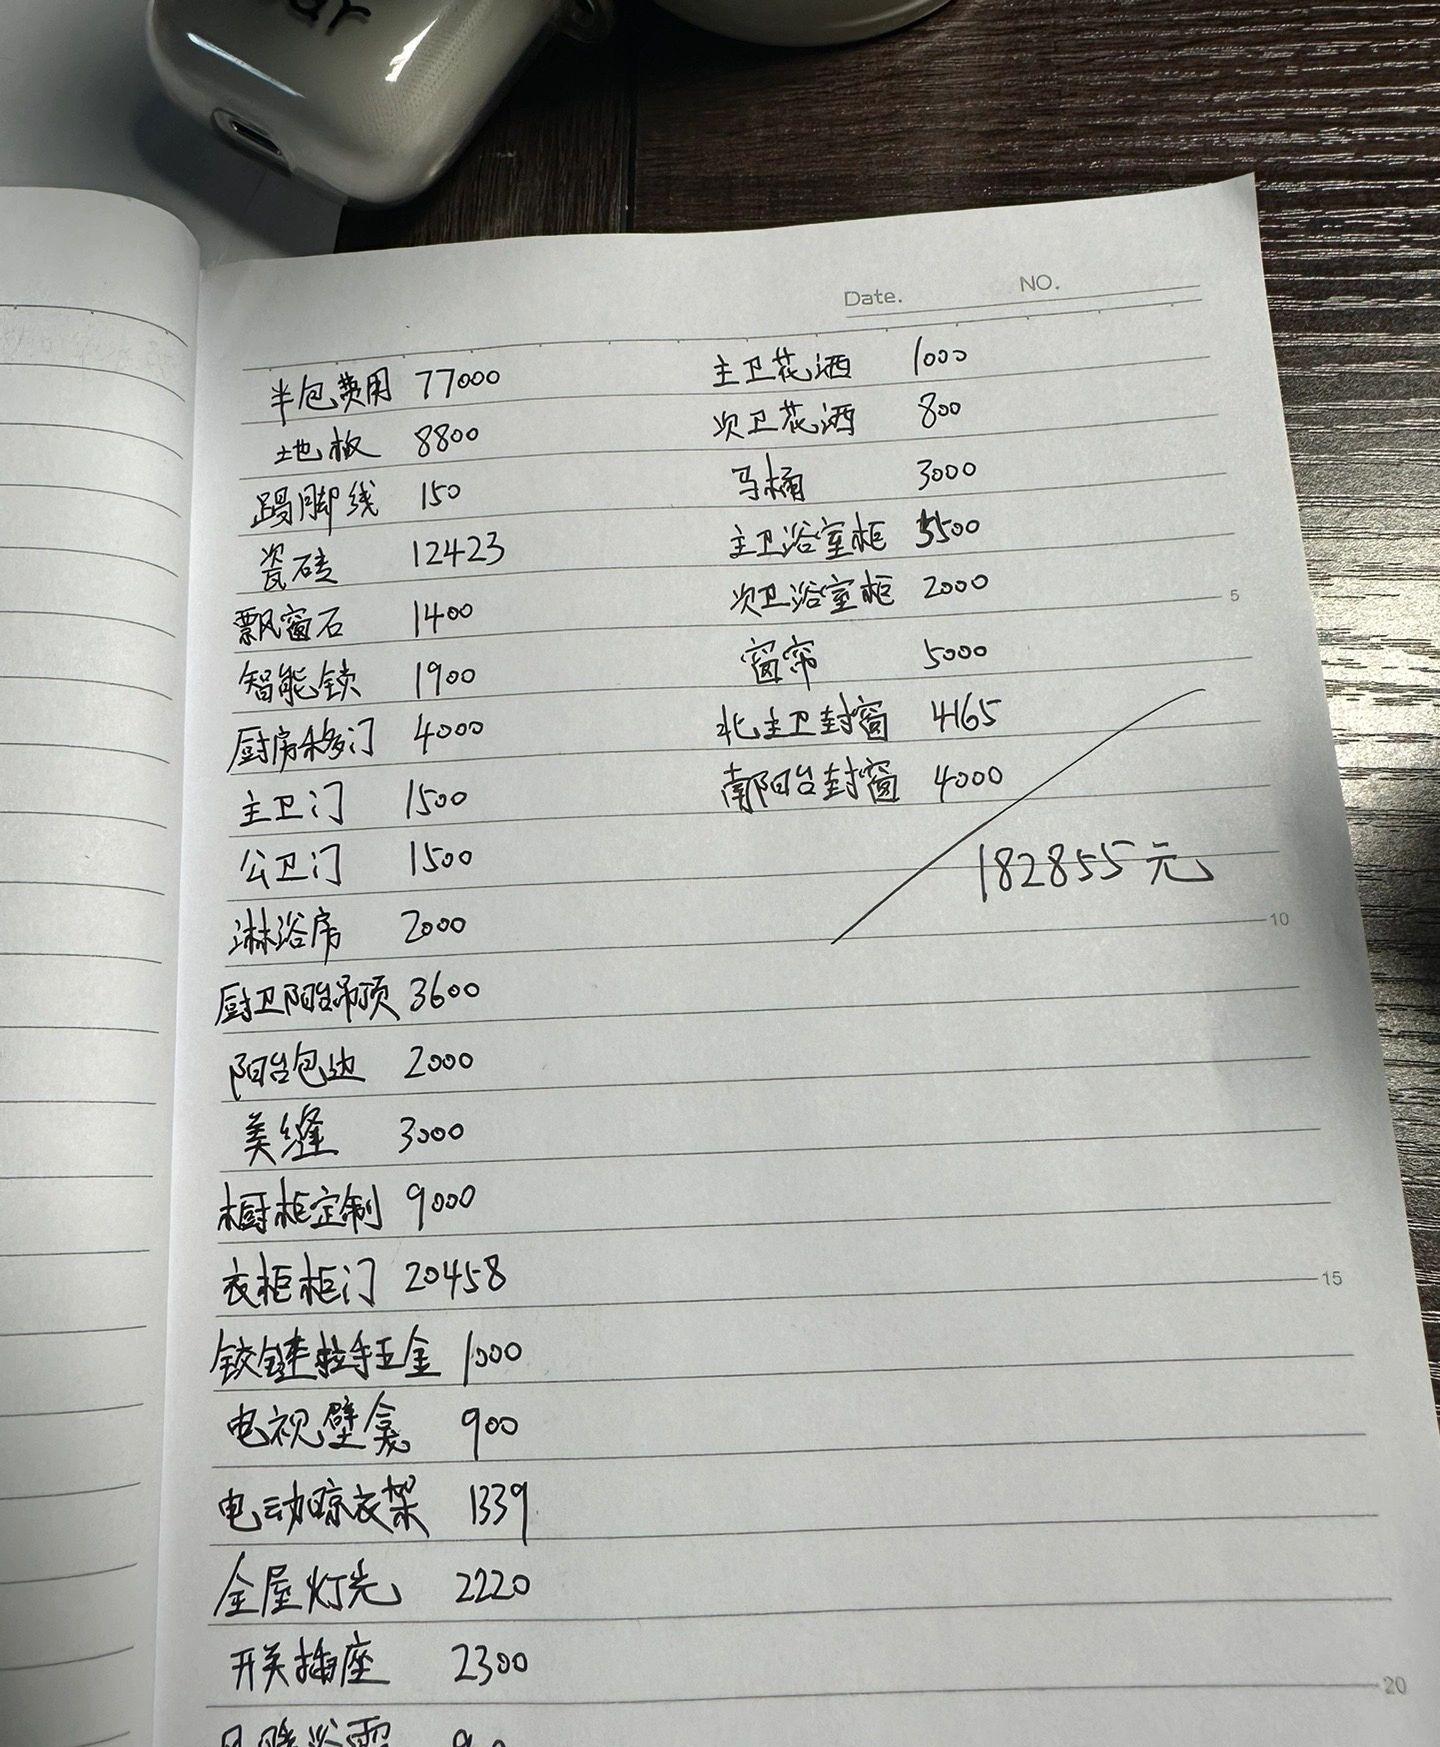 Date.
NO.
半包费用 77000
地板 8800
踢脚线 150
瓷砖 12423
飘窗石 1400
智能锁 1900
厨房移门 4000
主卫门 1500
公卫门 1500
淋浴房 2000
厨卫阳台吊顶 3600
阳台包边 2000
美缝 3000
橱柜定制 9000
衣柜柜门 20458
铰链拉手五金 1000
电视壁龛 900
电动晾衣架 1339
全屋灯光 2220
开关插座 2300
主卫花洒 1000
次卫花洒 800
马桶 3000
主卫浴室柜 3500
次卫浴室柜 2000
窗帘 5000
北主卫封窗 4165
南阳台封窗 4000
182855元
5
10
15
20